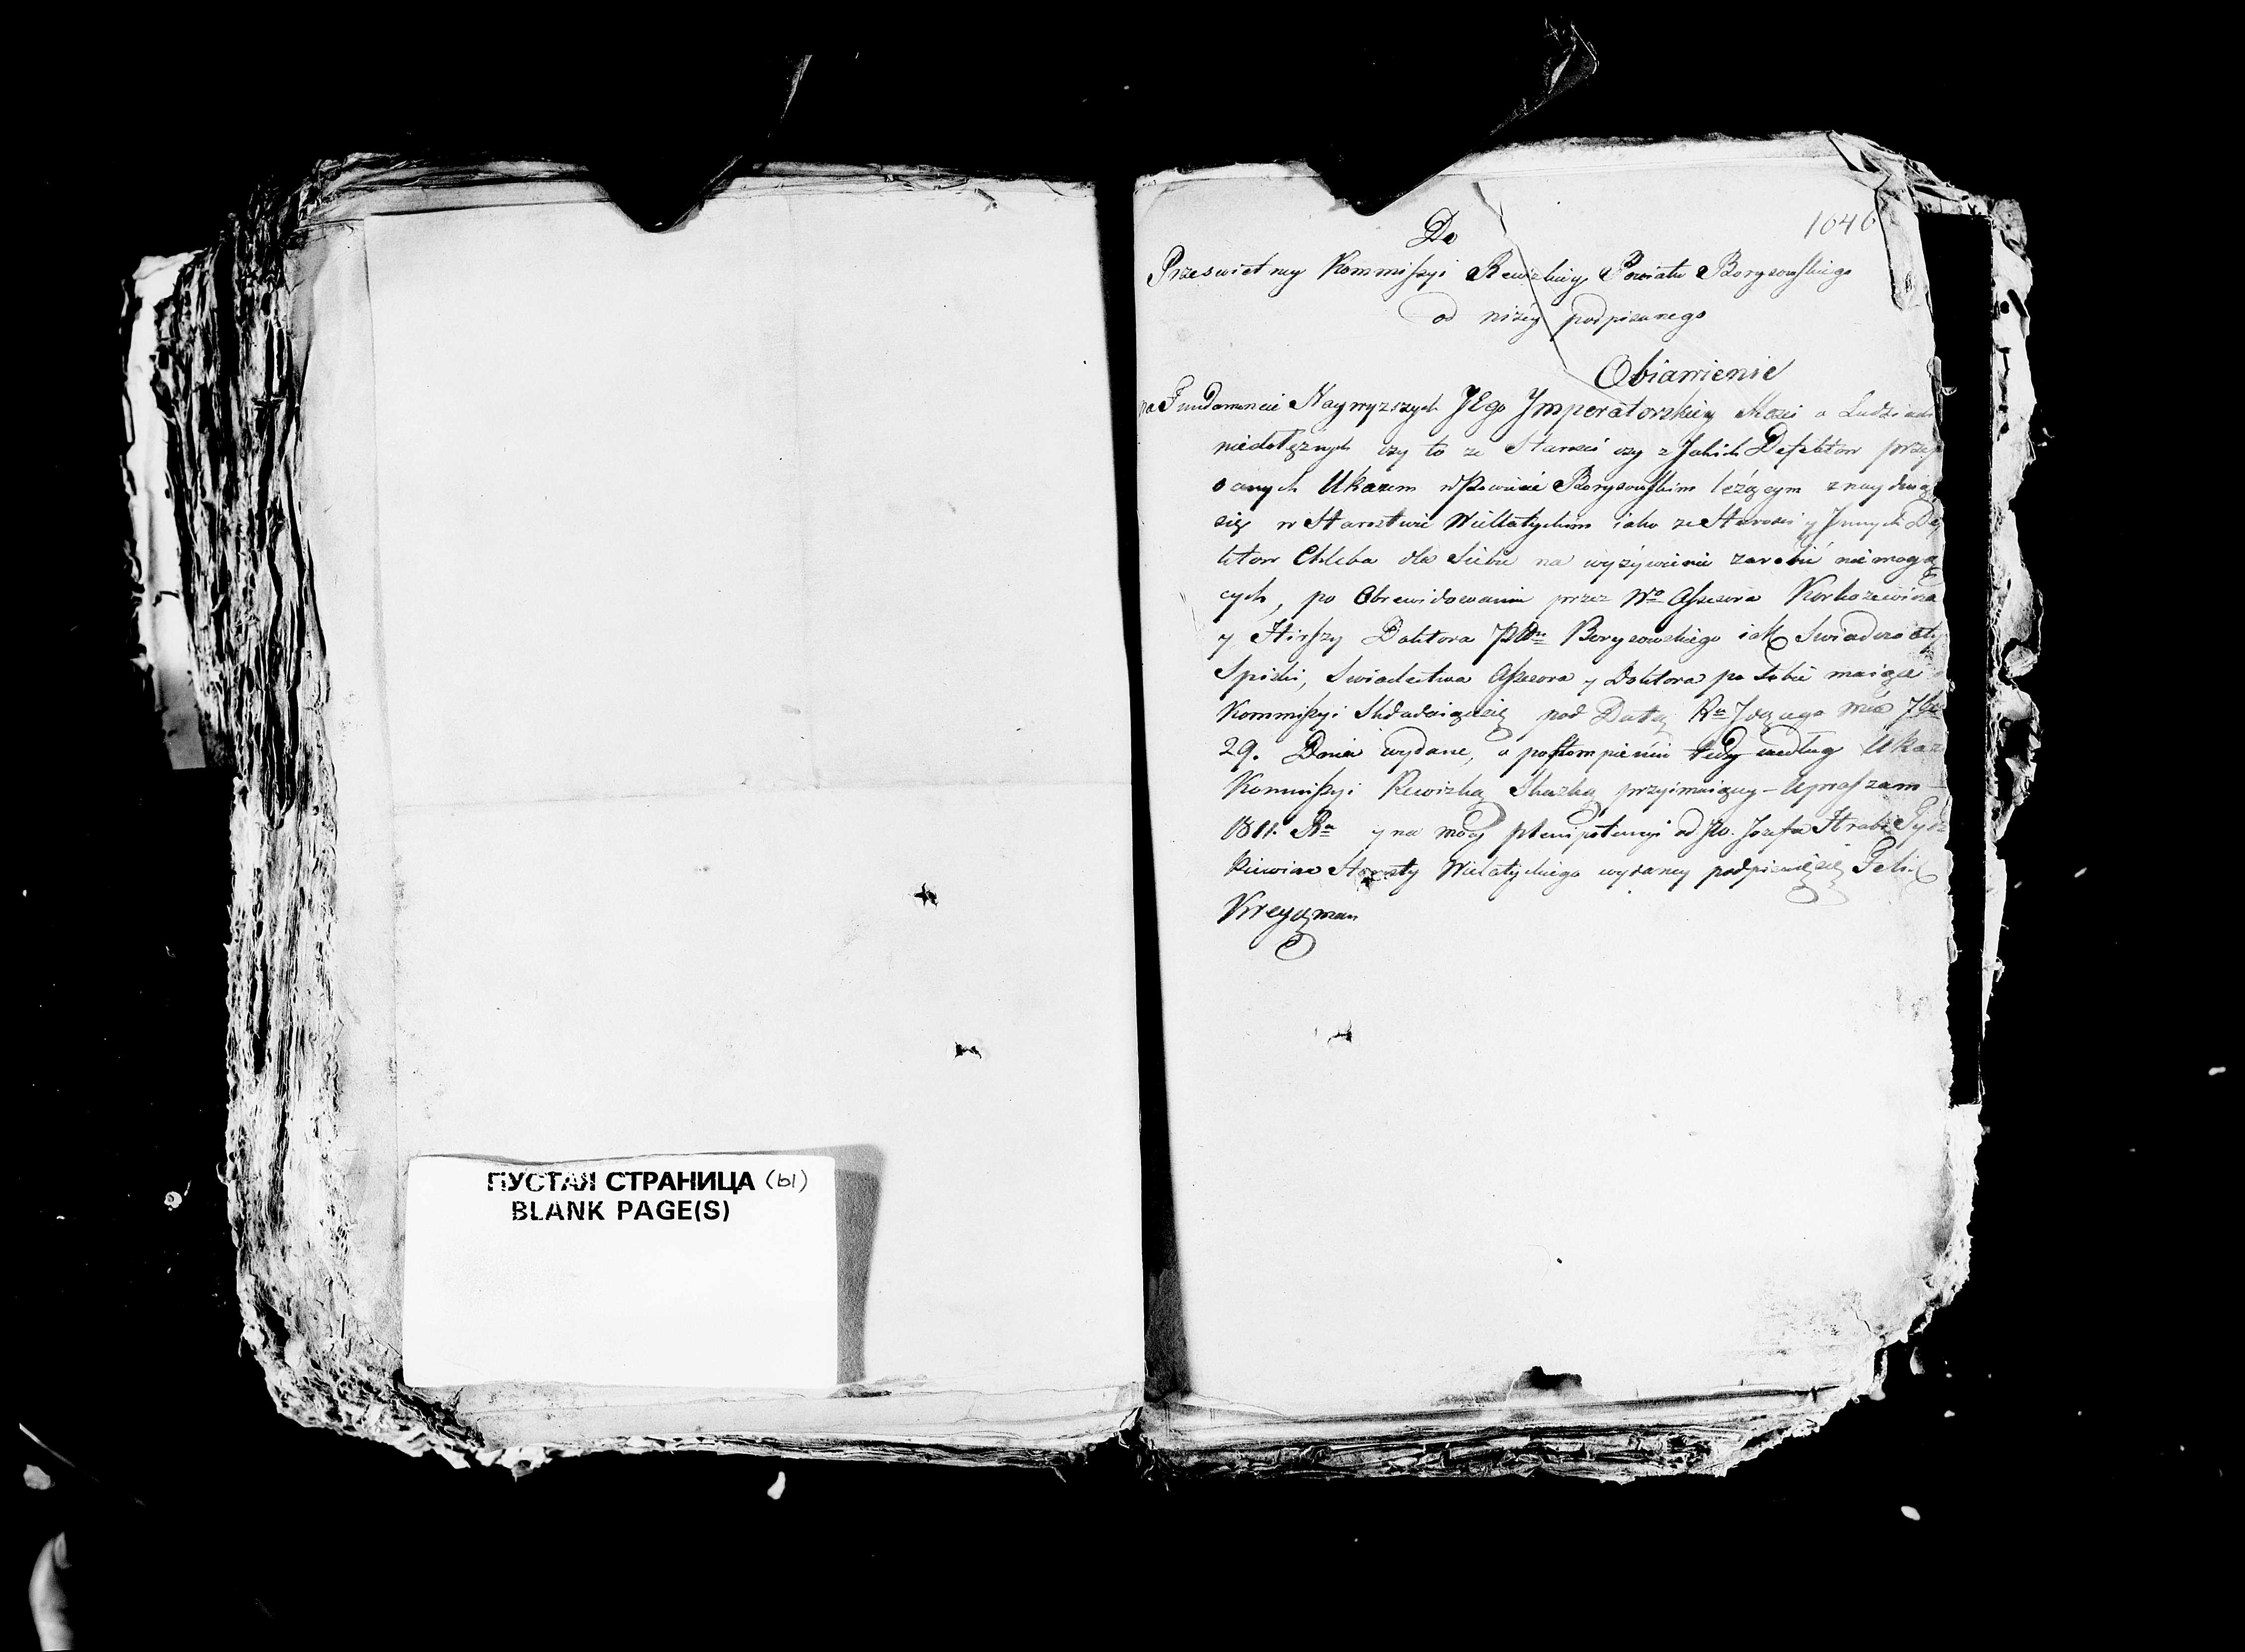 ПУСТАЯ СТРАНИЦА (ы)
BLANK PAGE(S)
1046
Do
Przeswietney Kommissyi Rewizkiey Powiatu Borysowskiego
od niżey podpisanego
Obiawienie
na Fundamencie Naywyzszych JEgo Jmperatorskiey Mosci o Ludziach
niedołężnych czy to ze Starosci czy z Jakich Defektow
Ukazem w Powiecie Borysowskim leżącym znayduią
się w Starostwie Wiellatyckim iako ze Starosci y Jnnych De
ktow Chleba dla Siebie na wyżywienie zarobić niemogą
cych, po Obrewidowaniu przez Wo Assesora
y Hirszy Doktora Borysowskiego iak
Spiski, Swiadectwa Assesora y Doktora po Sobie maiące
Kommissyi Składaiącsię pod Datą Ru mca
29. Dnia wydane, o postompienie tedy według Ukazu
Kommissyi Rewizką Skazką przyimuiącey - Upraszam -
1811. Ru y na mocy plenipotencyi od Jo. Jozefa Hrabi Tysz
kiewicza Starosty Wielatyckiego wydaney podpisuięsię Felix
Kreyczman